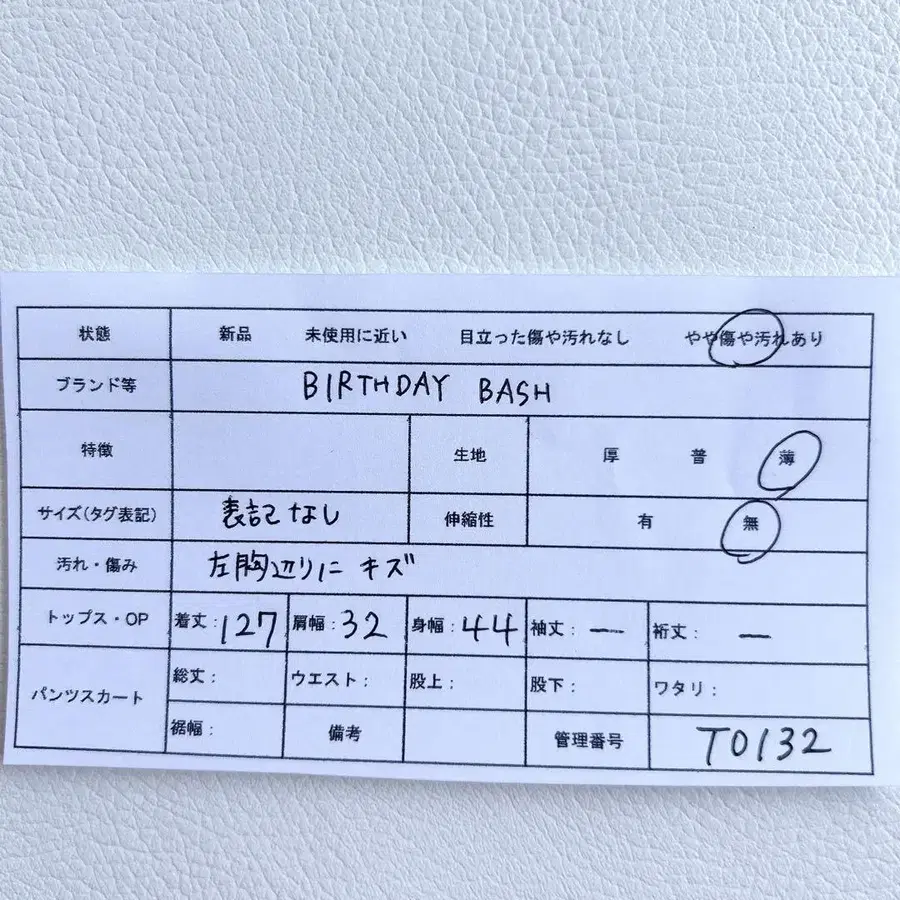 状態 新品 未使用に近い 目立った傷や汚れなし やや傷や汚れあり
ブランド等 BIRTHDAY BASH
特徴 生地 厚 普 薄
サイズ(タグ表記) 表記なし 伸縮性 有 無
汚れ・傷み 左胸辺りにキズ
トップス・OP 着丈：127 肩幅：32 身幅：44 袖丈：ー 裄丈：ー
パンツスカート 総丈： ウエスト： 股上： 股下： ワタリ：
裾幅： 備考 管理番号 T0132